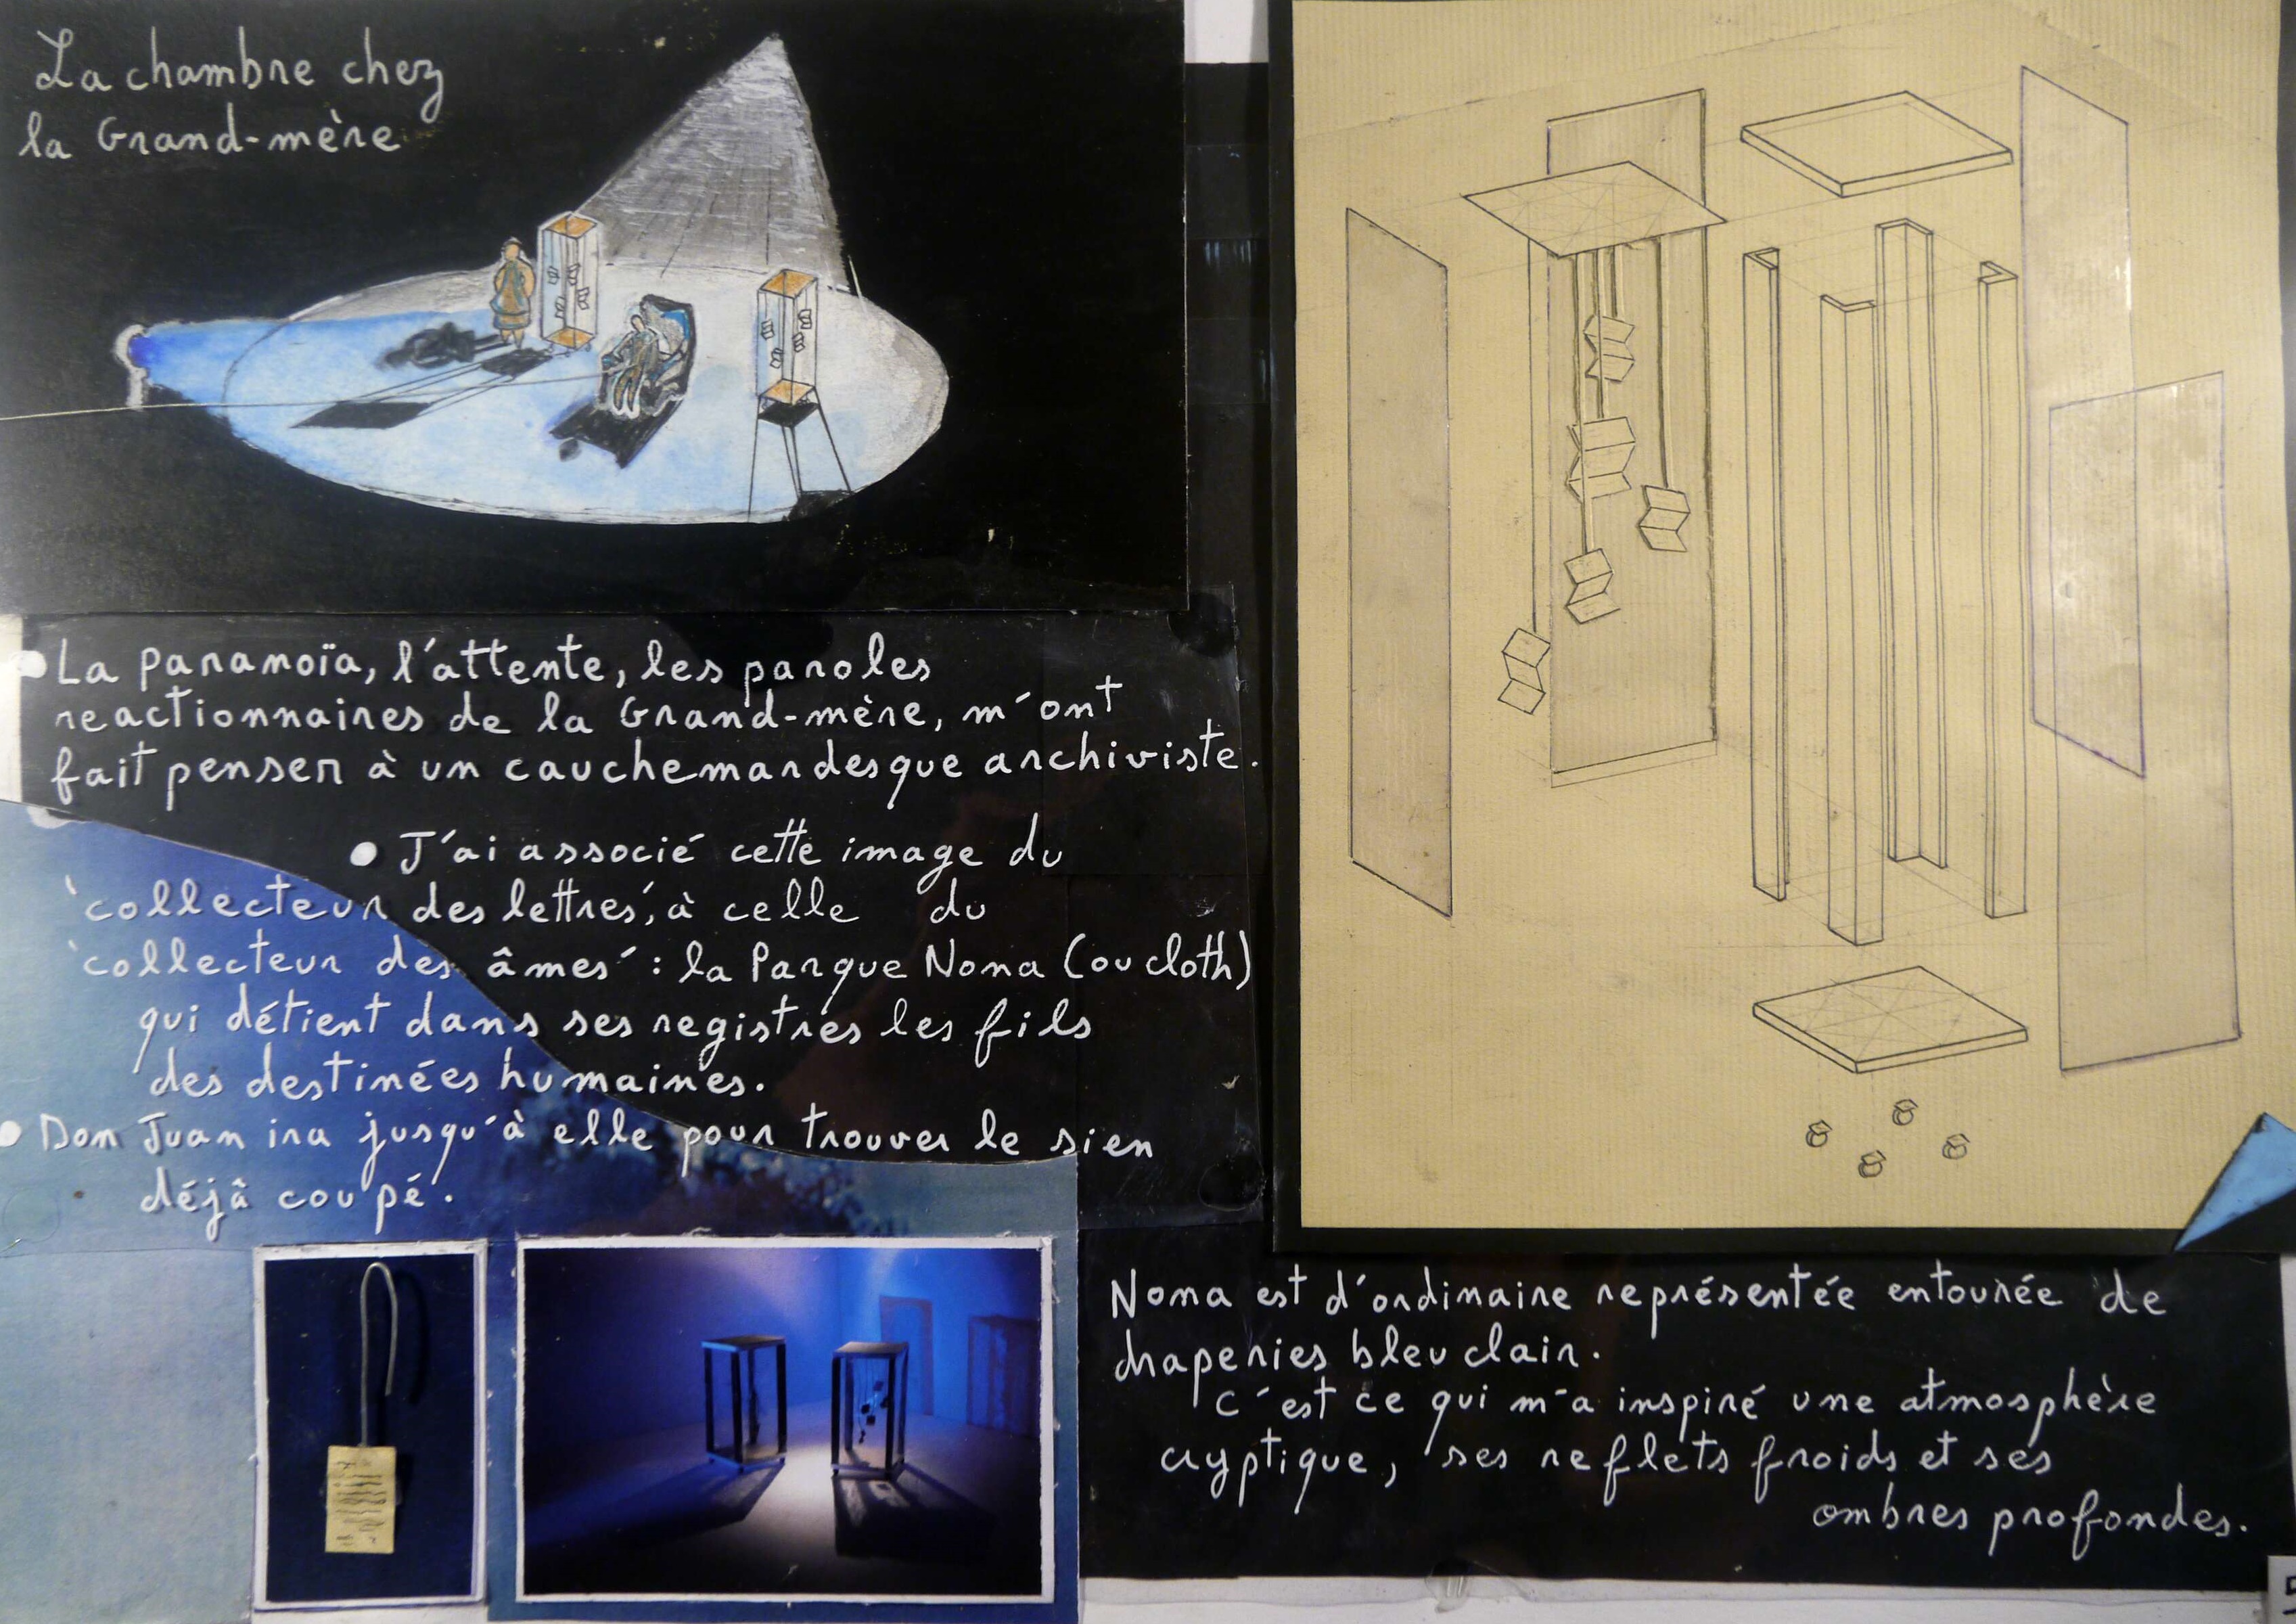 La chambre chez
la Grand-mère
• La paranoïa, l'attente, les paroles
reactionnaires de la Grand-mère, m'ont
fait penser à un cauchemardesque archiviste.
• J'ai associé cette image du
'collecteur des lettres', à celle du
'collecteur des âmes' : la Parque Nona (ou cloth)
qui détient dans ses registres les fils
des destinées humaines.
• Don Juan ira jusqu'à elle pour trouver le sien
déjà coupé.
Nona est d'ordinaire représentée entourée de
draperies bleu clair.
C'est ce qui m'a inspiré une atmosphère
cryptique, ses reflets froids et ses
ombres profondes.